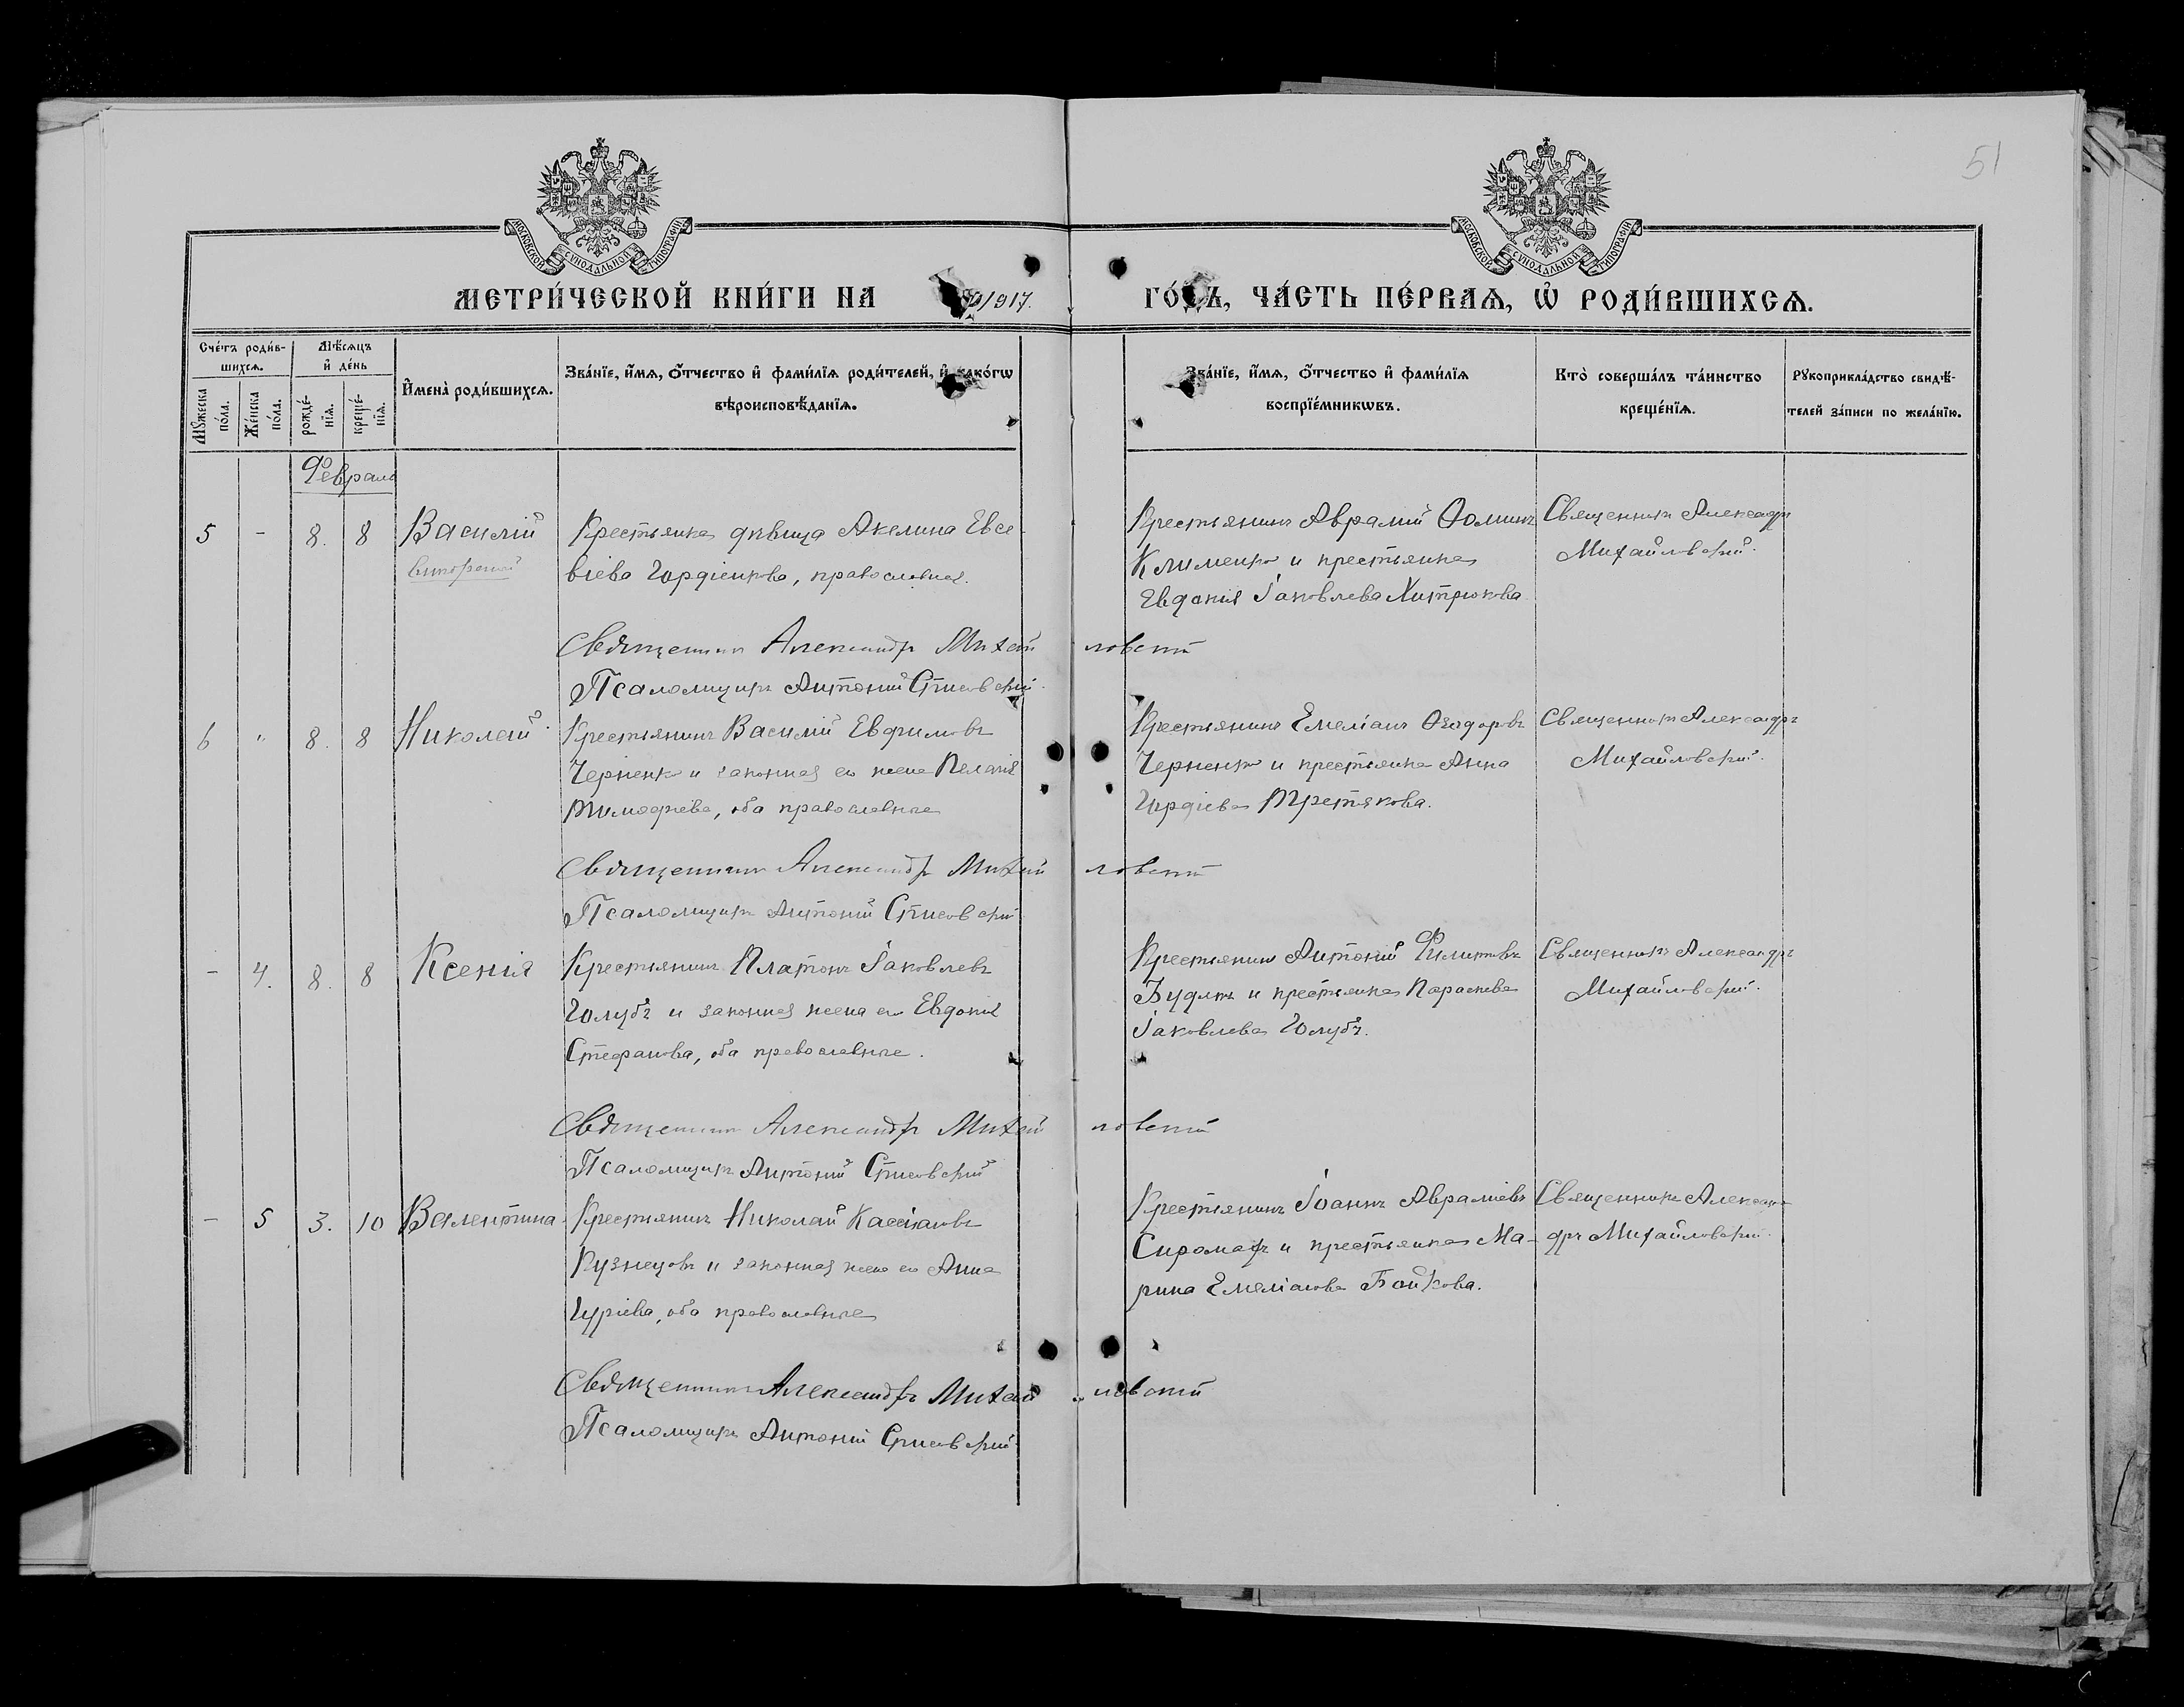 51
МОСКОВСКОЙ СѴНОДАЛЬНОЙ ТИПОГРАФІИ
МОСКОВСКОЙ СѴНОДАЛЬНОЙ ТИПОГРАФІИ
МЕТРИ́ЧЕСКОЙ КНИ́ГИ НА 1917. ГО́ДЪ, ЧА́СТЬ ПЕ́РВАѦ, Ѡ҆ РОДИ́ВШИХСѦ.
Сче́тъ роди́в-
шихсѧ.
Мꙋ́жеска по́ла.
Же́нска по́ла.
Мѣ́сѧцъ
и҆ де́нь
рожде́-
нїѧ.
креще́-
нїѧ.
И҆мена̀ роди́вшихсѧ.
Зва́нїе, и҆́мѧ, ѻ҆́тчество и҆ фами́лїѧ роди́телей, и҆ како́гѡ
вѣроисповѣ́данїѧ.
Зва́нїе, и҆́мѧ, ѻ҆́тчество и҆ фами́лїѧ
воспрїе́мникѡвъ.
Кто̀ соверша́лъ та́инство
креще́нїѧ.
Рꙋкоприкла́дство свидѣ́-
телей за́писи по жела́нїю.
Февраль
5 - 8. 8 Василій
Крестьянка дѣвица Акелина Евсе-
віева Гордіенкова, православная.
Крестьянинъ Аврамій Ѳоминъ
Клименко и крестьянка
Евдокія Іаковлева Хитрюкова
Священникъ Александръ
Михайловскій.
Священникъ Александръ Михайловскій
Псаломщикъ Антоній
6 " 8. 8 Николай.
Крестьянинъ Василій Евфимовъ
Черненко и законная его жена Пелагія
Тимофеева, оба православные
Крестьянинъ Емеліанъ Ѳеодоровъ
Черненко и крестьянка Анна
Гордіева Третякова.
Священникъ Александръ
Михайловскій.
Священникъ Александръ Михайловскій
Псаломщикъ Антоній
- 4. 8. 8 Ксенія
Крестьянинъ Платонъ Іаковлевъ
Голубъ и законная жена его Евдокія
Стефанова, оба православные.
Крестьянинъ Антоній Филиповъ
и крестьянка Параскева
Іаковлева Голубъ.
Священникъ Александръ
Михайловскій.
Священникъ Александръ Михайловскій
Псаломщикъ Антоній
- 5 3. 10 Валентина
Крестьянинъ Николай Кассіановъ
Кузнецовъ и законная жена его Анна
Гуріева, оба православные
Крестьянинъ Іоаннъ Авраміевъ
и крестьянка Ма-
рина Емеліанова Бойкова.
Священникъ Алексан-
дръ Михайловскій.
Священникъ Александръ Михайловскій
Псаломщикъ Антоній